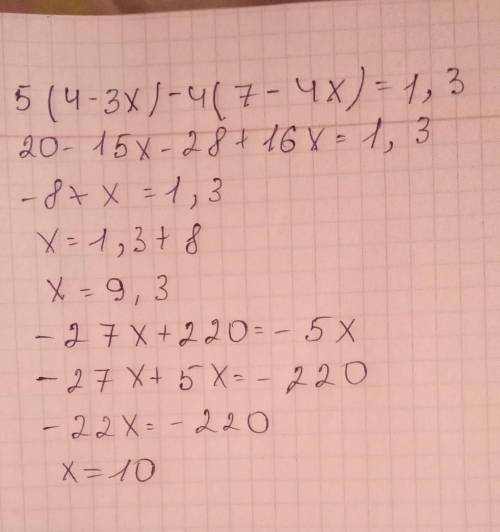 5(4-3x)-4(7-4x)=1,3
20-15x-28+16x=1,3
-8+x=1,3
x=1,3+8
x=9,3
-27x+220=-5x
-27x+5x=-220
-22x=-220
x=10